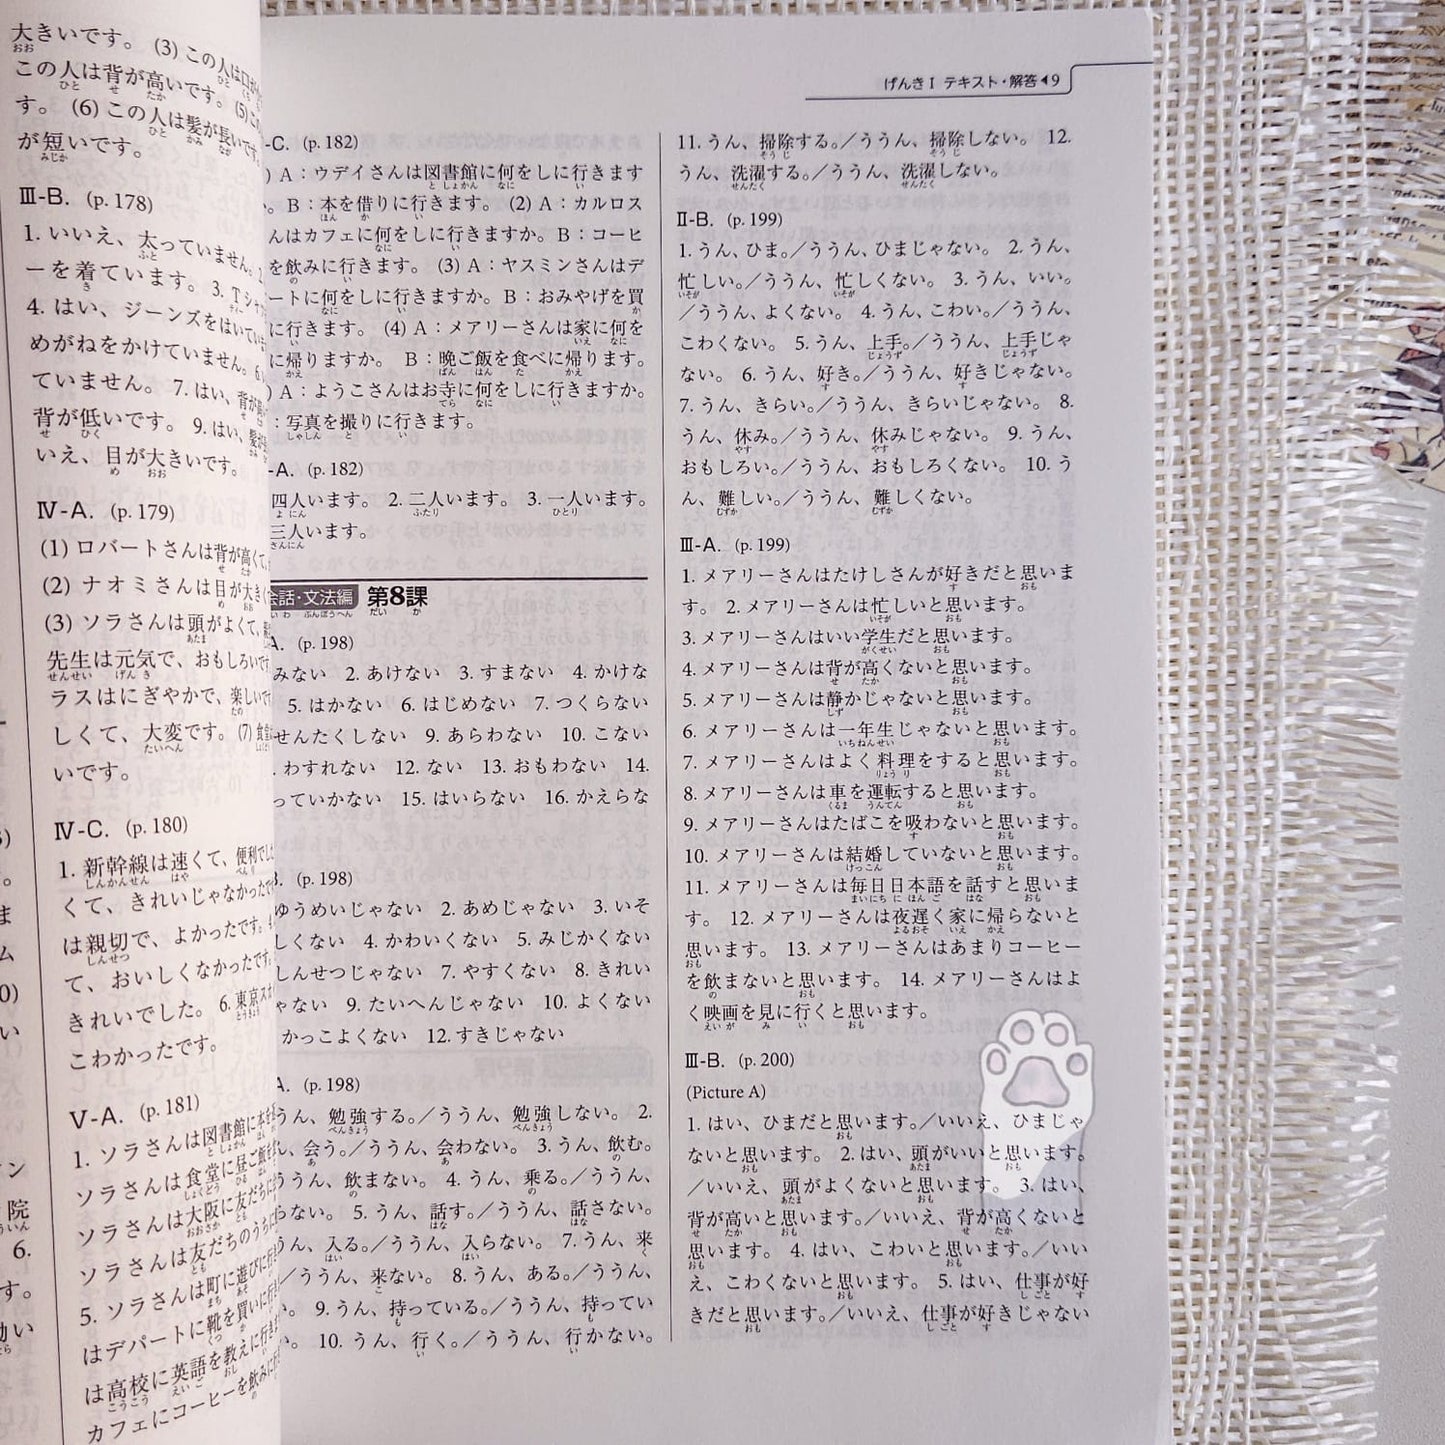 大きいです。 (3) この人は口が
この人は背が高いです。 (5) この
す。 (6) この人は髪が長いです。
が短いです。
Ⅲ-B. (p. 178)
1. いいえ、太っていません。 2.
ーを着ています。 3. Tシャ
4. はい、ジーンズをはいていま
めがねをかけていません。 6.
ていません。 7. はい、背が高
背が低いです。 9. はい、髪が
いえ、目が大きいです。
Ⅳ-A. (p. 179)
(1) ロバートさんは背が高くて、
(2) ナオミさんは目が大きく
(3) ソラさんは頭がよくて、
先生は元気で、おもしろいです
ラスはにぎやかで、楽しいです
しくて、大変です。 (7) 食堂
いです。
Ⅳ-C. (p. 180)
1. 新幹線は速くて、便利でした
くて、きれいじゃなかったで
は親切で、よかったです。
て、おいしくなかったです。
きれいでした。 6. 東京ス
こわかったです。
Ⅴ-A. (p. 181)
1. ソラさんは図書館に本を
ソラさんは食堂に昼ご飯を
ソラさんは大阪に友だちに
ソラさんは友だちのうちに
5. ソラさんは町に遊びに行き
はデパートに靴を買いに行き
は高校に英語を教えに行き
カフェにコーヒーを飲みに
げんきⅠ テキスト・解答◀9
-C. (p. 182)
) A:ウデイさんは図書館に何をしに行きます
か。 B:本を借りに行きます。 (2) A:カルロス
んはカフェに何をしに行きますか。B:コーヒ
を飲みに行きます。 (3) A:ヤスミンさんはデ
ートに何をしに行きますか。B:おみやげを買
に行きます。 (4) A:メアリーさんは家に何を
に帰りますか。 B:晩ご飯を食べに帰ります。
) A:ようこさんはお寺に何をしに行きますか。
:写真を撮りに行きます。
-A. (p. 182)
四人います。 2. 二人います。 3. 一人います。
三人います。
会話・文法編 第8課
A. (p. 198)
みない 2. あけない 3. すまない 4. かけな
5. はかない 6. はじめない 7. つくらない
せんたくしない 9. あらわない 10. こない
. わすれない 12. ない 13. おもわない 14.
っていかない 15. はいらない 16. かえらな
B. (p. 198)
ゆうめいじゃない 2. あめじゃない 3. いそ
しくない 4. かわいくない 5. みじかくない
しんせつじゃない 7. やすくない 8. きれい
ゃない 9. たいへんじゃない 10. よくない
かっこよくない 12. すきじゃない
A. (p. 198)
うん、勉強する。/ううん、勉強しない。 2.
ん、会う。/ううん、会わない。 3. うん、飲む。
ううん、飲まない。 4. うん、乗る。/ううん、
らない。 5. うん、話す。/ううん、話さない。
うん、入る。/ううん、入らない。 7. うん、来
/ううん、来ない。 8. うん、ある。/ううん、
い。 9. うん、持っている。/ううん、持ってい
。 10. うん、行く。/ううん、行かない。
11. うん、掃除する。/ううん、掃除しない。 12.
うん、洗濯する。/ううん、洗濯しない。
Ⅱ-B. (p. 199)
1. うん、ひま。/ううん、ひまじゃない。 2. うん、
忙しい。/ううん、忙しくない。 3. うん、いい。
/ううん、よくない。 4. うん、こわい。/ううん、
こわくない。 5. うん、上手。/ううん、上手じゃ
ない。 6. うん、好き。/ううん、好きじゃない。
7. うん、きらい。/ううん、きらいじゃない。 8.
うん、休み。/ううん、休みじゃない。 9. うん、
おもしろい。/ううん、おもしろくない。 10. う
ん、難しい。/ううん、難しくない。
Ⅲ-A. (p. 199)
1. メアリーさんはたけしさんが好きだと思いま
す。 2. メアリーさんは忙しいと思います。
3. メアリーさんはいい学生だと思います。
4. メアリーさんは背が高くないと思います。
5. メアリーさんは静かじゃないと思います。
6. メアリーさんは一年生じゃないと思います。
7. メアリーさんはよく料理をすると思います。
8. メアリーさんは車を運転すると思います。
9. メアリーさんはたばこを吸わないと思います。
10. メアリーさんは結婚していないと思います。
11. メアリーさんは毎日日本語を話すと思いま
す。 12. メアリーさんは夜遅く家に帰らないと
思います。 13. メアリーさんはあまりコーヒー
を飲まないと思います。 14. メアリーさんはよ
く映画を見に行くと思います。
Ⅲ-B. (p. 200)
(Picture A)
1. はい、ひまだと思います。/いいえ、ひまじゃ
ないと思います。 2. はい、頭がいいと思います。
/いいえ、頭がよくないと思います。 3. はい、
背が高いと思います。/いいえ、背が高くないと
思います。 4. はい、こわいと思います。/いい
え、こわくないと思います。 5. はい、仕事が好
きだと思います。/いいえ、仕事が好きじゃない